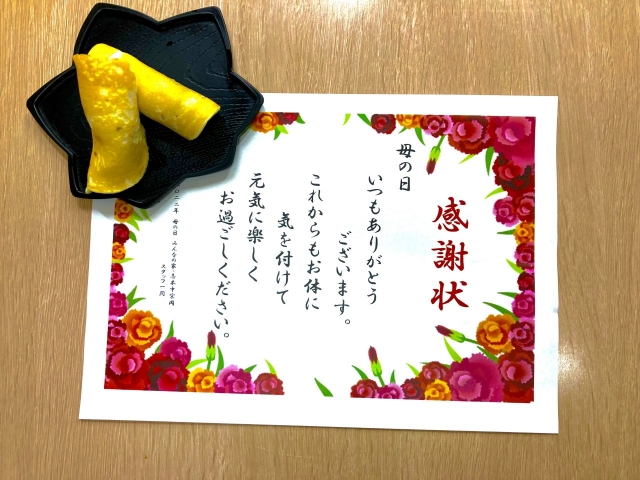 感謝状
母の日
いつもありがとう
ございます。
これからもお体に
気を付けて
元気に楽しく
お過ごしください。
母の日 みんなの家・志木中宗岡
スタッフ一同